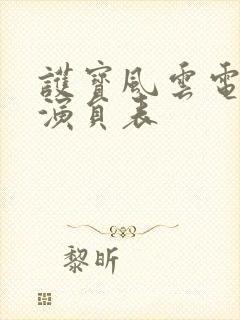 護寶風雲電
演員表
黎昕